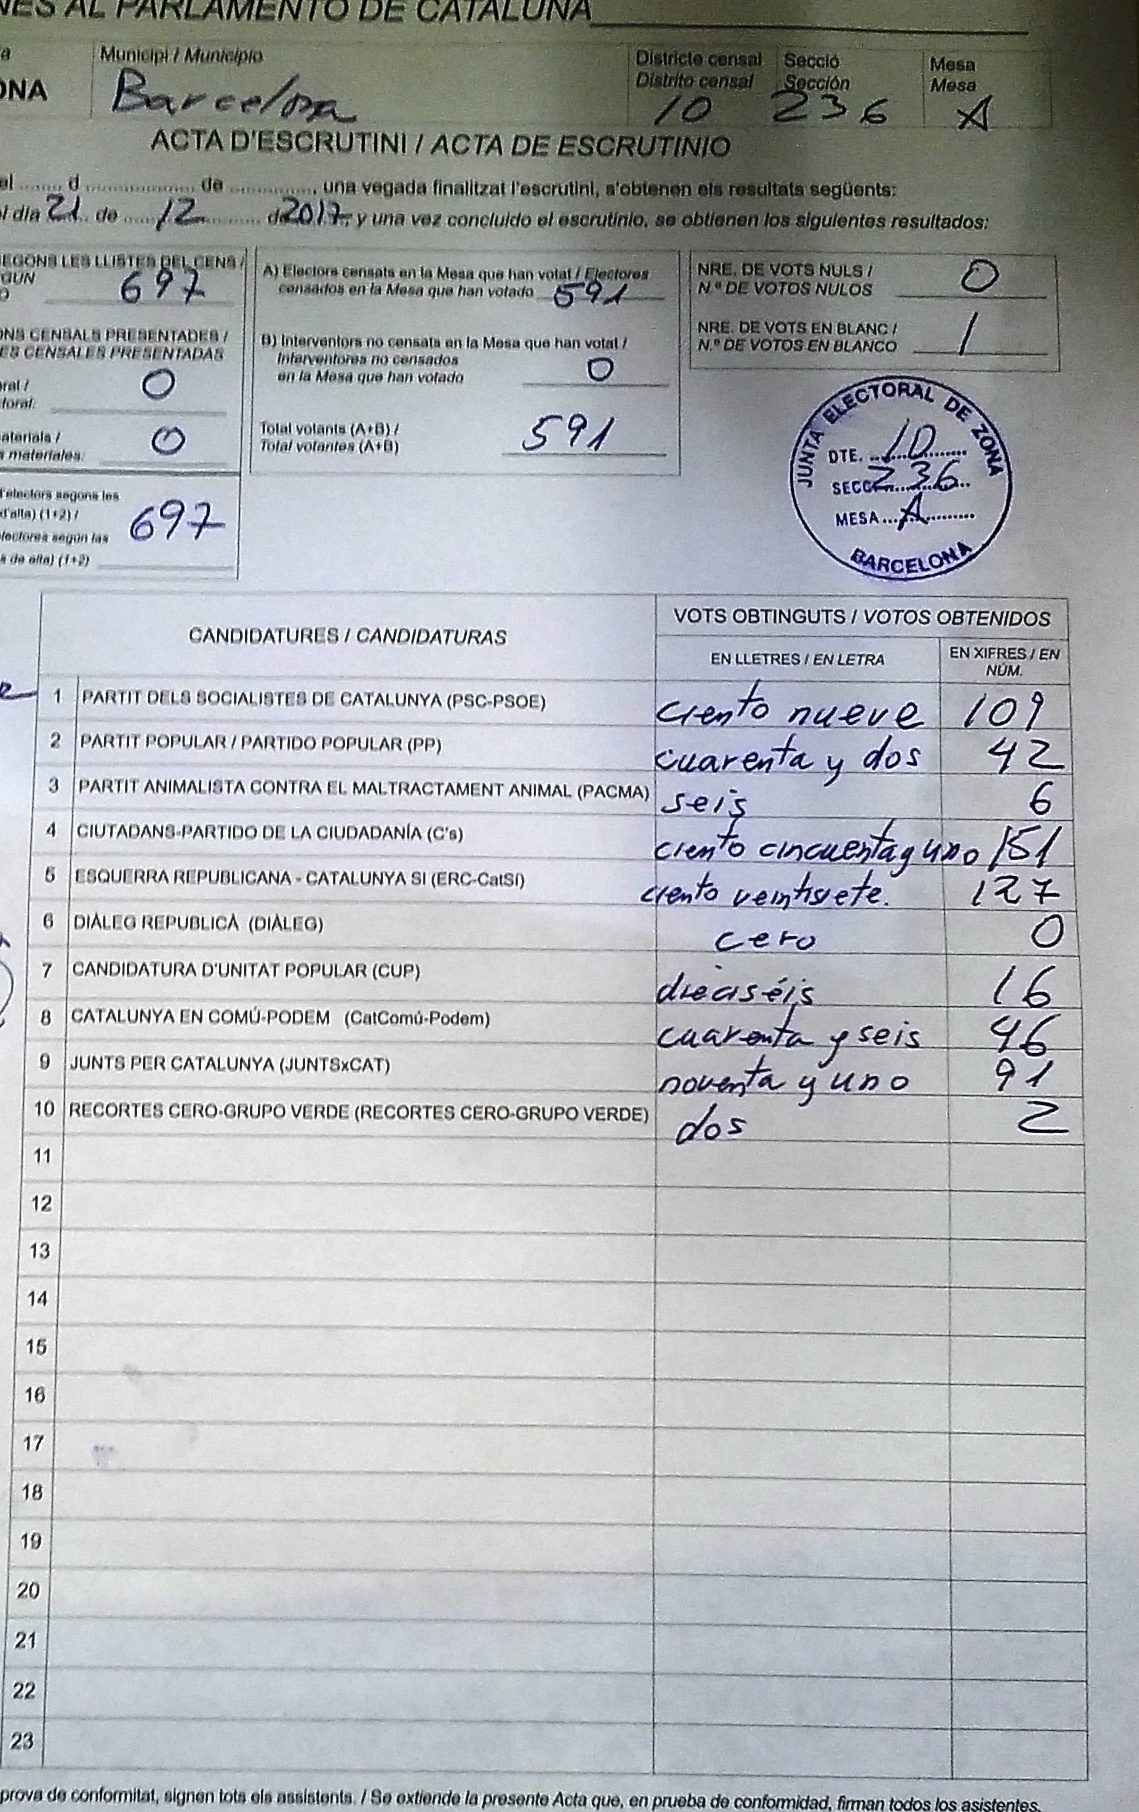 NES AL PARLAMENTO DE CATALUÑA
Municipi / Municipio
Districte censal Secció Mesa
Distrito censal Sección Mesa
ONA Barcelona 10 236 A
ACTA D'ESCRUTINI / ACTA DE ESCRUTINIO
el ....... d .................. de .............., una vegada finalitzat l'escrutini, s'obtenen els resultats següents:
l día 21 de ..... 12 ......... de 2017, y una vez concluido el escrutinio, se obtienen los siguientes resultados:
EGONS LES LLISTES DEL CENS /
GUN
O 697
ONS CENSALS PRESENTADES /
ES CENSALES PRESENTADAS
oral /
toral: 0
aterials /
s materiales: 0
d'electors segons les
d'alta) (1+2) /
lectores según las
s de alta) (1+2) 697
A) Electors censats en la Mesa que han votat / Electores
censados en la Mesa que han votado 591
B) Interventors no censats en la Mesa que han votat /
Interventores no censados
en la Mesa que han votado 0
Total votants (A+B) /
Total votantes (A+B) 591
NRE. DE VOTS NULS /
N.º DE VOTOS NULOS 0
NRE. DE VOTS EN BLANC /
N.º DE VOTOS EN BLANCO 1
JUNTA ELECTORAL DE ZONA
DTE. 10
SECC. 236
MESA A
BARCELONA
CANDIDATURES / CANDIDATURAS
VOTS OBTINGUTS / VOTOS OBTENIDOS
EN LLETRES / EN LETRA
EN XIFRES / EN
NÚM.
1 PARTIT DELS SOCIALISTES DE CATALUNYA (PSC-PSOE) ciento nueve 109
2 PARTIT POPULAR / PARTIDO POPULAR (PP) cuarenta y dos 42
3 PARTIT ANIMALISTA CONTRA EL MALTRACTAMENT ANIMAL (PACMA) seis 6
4 CIUTADANS-PARTIDO DE LA CIUDADANÍA (C's) ciento cincuenta y uno 151
5 ESQUERRA REPUBLICANA - CATALUNYA SI (ERC-CatSí) ciento veintisiete. 127
6 DIÀLEG REPUBLICÀ (DIÀLEG) cero 0
7 CANDIDATURA D'UNITAT POPULAR (CUP) dieciséis 16
8 CATALUNYA EN COMÚ-PODEM (CatComú-Podem) cuarenta y seis 46
9 JUNTS PER CATALUNYA (JUNTSxCAT) noventa y uno 91
10 RECORTES CERO-GRUPO VERDE (RECORTES CERO-GRUPO VERDE) dos 2
11
12
13
14
15
16
17
18
19
20
21
22
23
prova de conformitat, signen tots els assistents. / Se extiende la presente Acta que, en prueba de conformidad, firman todos los asistentes.